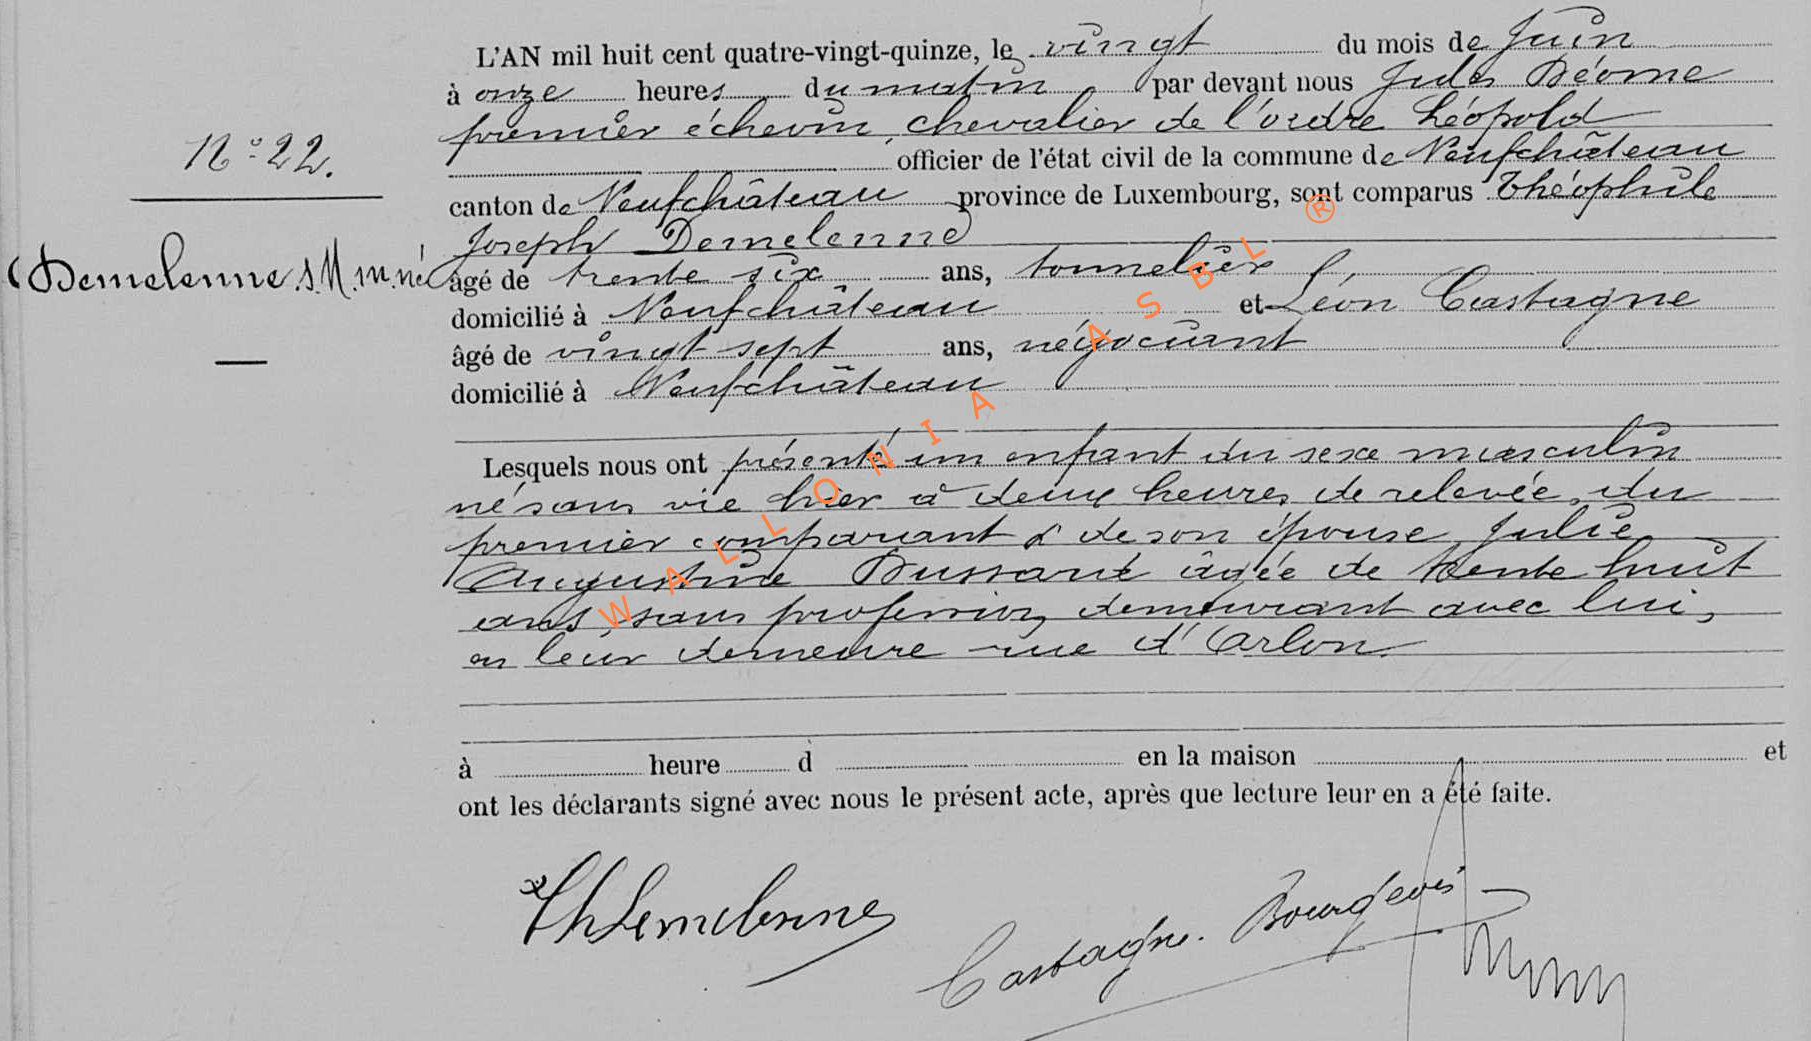 L'AN mil huit cent quatre-vingt-quinze, le vingt du mois de Juin
à onze heures du matin par devant nous Jules Déome
premier échevin, chevalier de l'ordre Léopold
N° 22.
officier de l'état civil de la commune de Neufchâteau
canton de Neufchâteau province de Luxembourg, sont comparus Théophile
Joseph Demelenne
Demelenne
âgé de trente six ans, tonnelier
domicilié à Neufchâteau et Léon Castagne
âgé de vingt sept ans, négociant
domicilié à Neufchâteau
Lesquels nous ont présenté un enfant du sexe masculin
né sans vie hier à deux heures de relevée, du
premier comparant & de son épouse Julie
Augustine Dussard âgée de trente huit
ans, sans profession, demeurant avec lui,
en leur demeure rue d'Arlon.
à heure d en la maison et
ont les déclarants signé avec nous le présent acte, après que lecture leur en a été faite.
Th Demelenne
Castagne. Bourgeois
WALLONIA ASBL ®